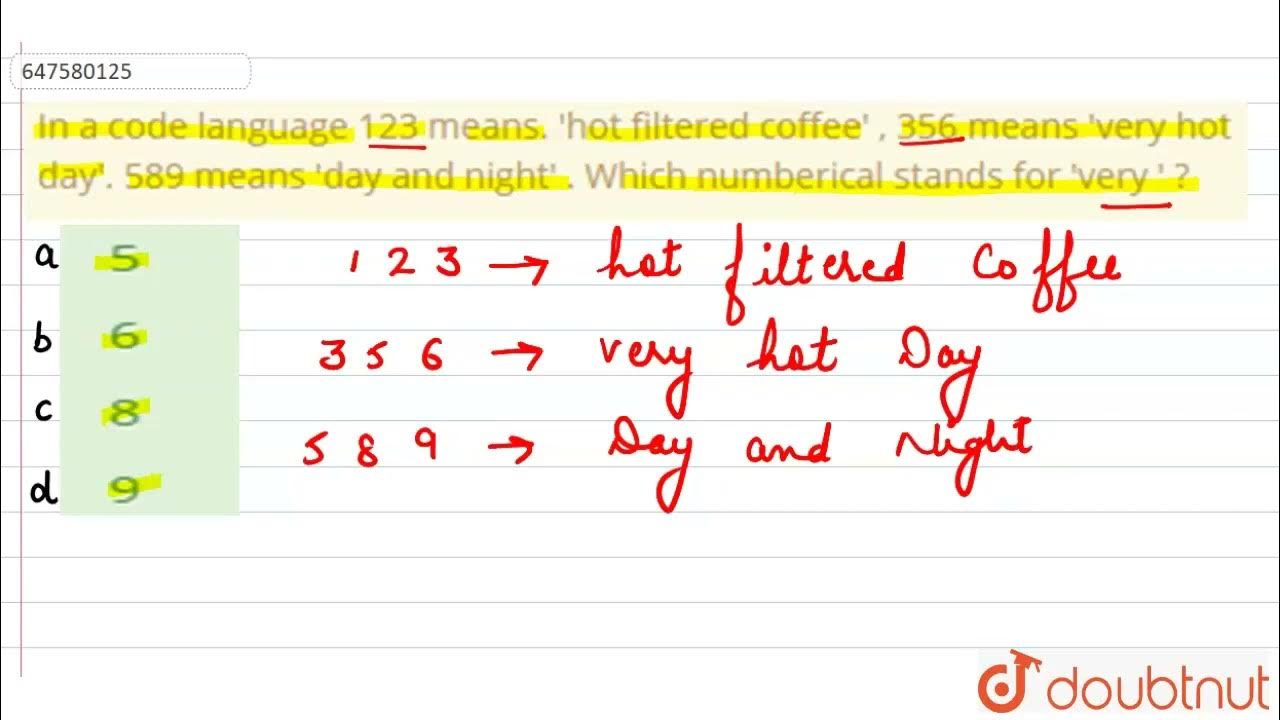 647580125
In a code language 123 means. 'hot filtered coffee' , 356 means 'very hot
day'. 589 means 'day and night' . Which numberical stands for 'very ' ?
a 5
b 6
c 8
d 9
1 2 3 → hot filtered Coffee
3 5 6 → very hot Day
5 8 9 → Day and Night
doubtnut